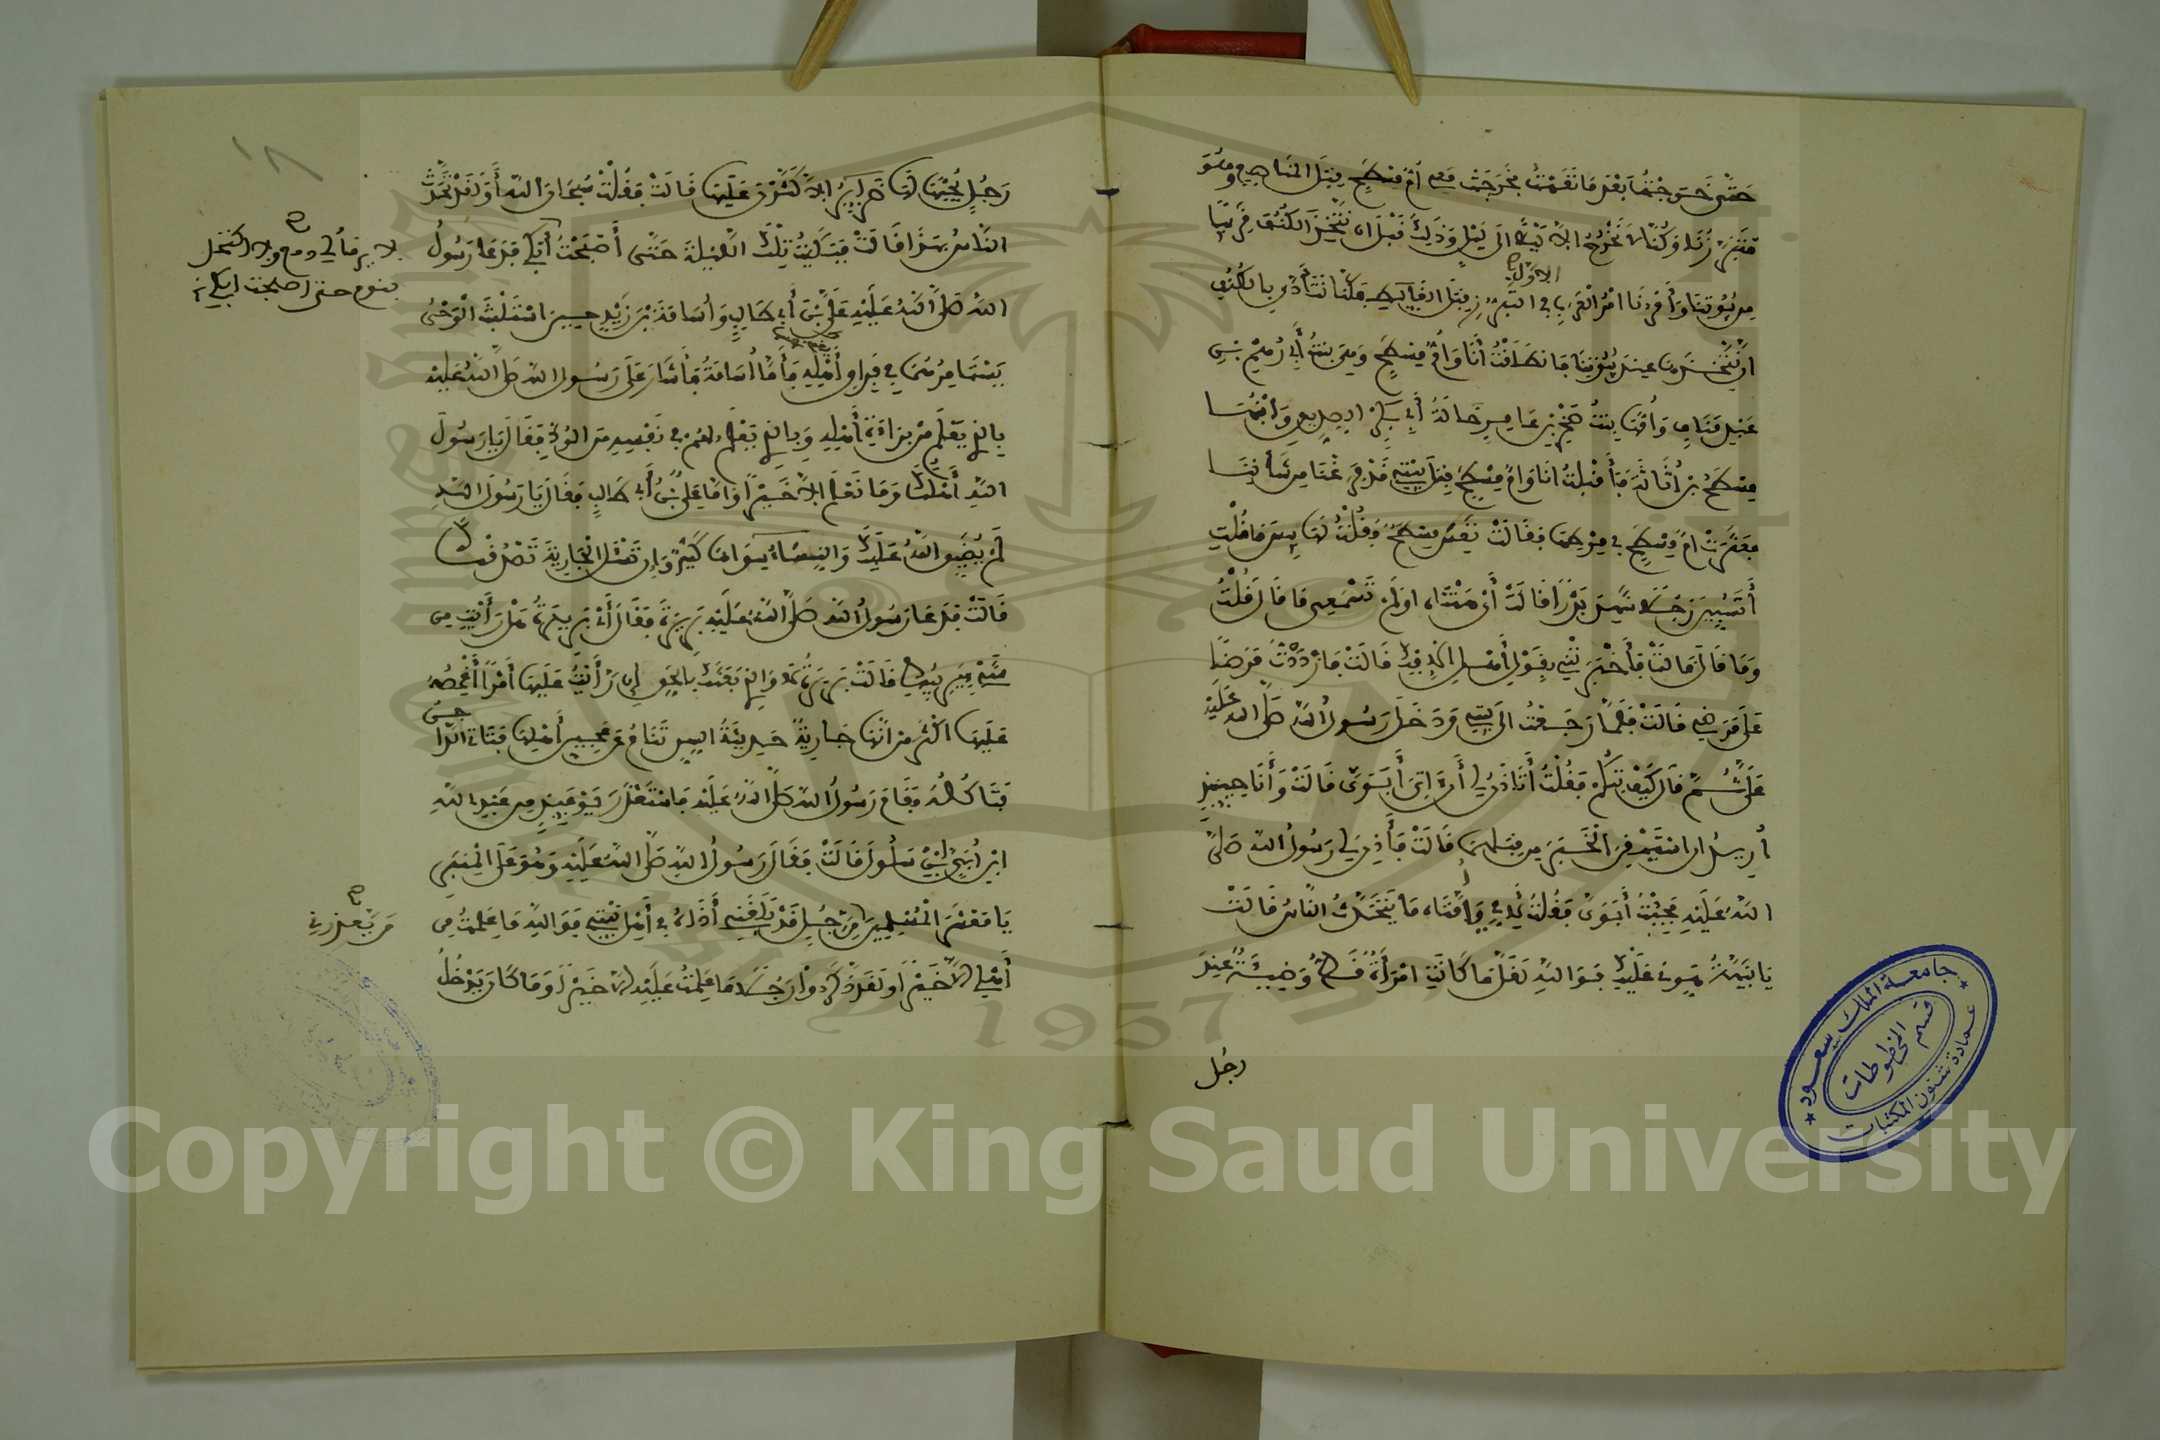 حَتَّى خَرَجْتُ بَعْدَ مَا نَقَهْتُ فَخَرَجَتْ مَعِي أُمُّ مِسْطَحٍ قِبَلَ المَنَاصِعِ وهُوَ
مُتَبَرَّزُنَا وَكُنَّا لَا نَخْرُجُ إِلَّا لَيْلًا إِلَى لَيْلٍ وَذَلِكَ قَبْلَ أَن نَتَّخِذَ الكُنُفَ قَرِيبًا
مِن بُيُوتِنَا وَأَمْرُنَا أَمْرُ العَرَبِ الاوَل في التَّبَرُّزِ قِبَلَ الغَايِطِ فَكُنَّا نَتَأَذَّى بِالكُنُفِ
أَن نَتَّخِذَهَا عِندَ بُيُوتِنَا فَانطَلَقْتُ أَنَا وَأُمُّ مِسْطَحٍ وَهِيَ بِنتُ أَبِي رُهْمِ بْنِ
عَبْدِ مَنَافٍ وَأُمُّهَا بِنتُ صَخْرِ بْنِ عَامِرٍ خَالَةُ أَبِي بَكْرٍ الصِّدِّيقِ وَابْنُهَا
مِسْطَحُ بْنُ أُثَاثَةَ فَأَقْبَلْتُ أَنَا وَأُمُّ مِسْطَحٍ قِبَلَ بَيْتِي قَدْ فَرَغْنَا مِن شَأْنِنَا
فَعَثَرَتْ أُمُّ مِسْطَحٍ فِي مِرْطِهَا فَقَالَتْ تَعِسَ مِسْطَحٌ فَقُلْتُ لَهَا بِيسَ مَا قُلْتِ
أَتَسُبِّينَ رَجُلًا شَهِدَ بَدْرًا قَالَتْ أَيْ هَنْتَاه اوَلَمْ تَسْمَعِي مَا قَالَ قُلْتُ
وَمَا قَالَ قَالَتْ فَأَخْبَرَتْنِي بِقَوْلِ أَهْلِ الإِفْكِ قَالَتْ فَازْدَدْتُ مَرَضًا
عَلَى مَرَضِي قَالَتْ فَلَمَّا رَجَعْتُ الَى بَيْتِي وَدَخَلَ رَسُولُ اللهِ صَلَّى اللهُ عَلَيْهِ
عَلَيَّ ثُمَّ قَالَ كَيْفَ تِيكُمْ فَقُلْتُ أَتَاذَنُ لِي أَن اتِيَ أَبَوَيَّ قَالَتْ وَأَنَا حِينَئِذٍ
أُرِيدُ أن اسْتَيْقِنَ الْخَبَرَ مِن قِبَلِهِمَا قَالَتْ فَأَذِنَ لِي رَسُولُ اللهِ صَلَّى
اللهُ عَلَيْهِ فَجِئْتُ أَبَوَيَّ فَقُلْتُ لِأُمِّي يَا أُمَّتَاه مَا يَتَحَدَّثُ النَّاسُ قَالَتْ
يَا بُنَيَّةُ هَوِّنِي عَلَيْكِ فَوَاللهِ لَقَلَّمَا كَانَتِ امْرَأَةٌ قَطُّ وَضِيئَةٌ عِندَ
رجُل
رَجُلٍ يُحِبُّهَا لَهَا ضَرَايِرُ إِلَّا كَثَّرْنَ عَلَيْهَا قَالَتْ فَقُلْتُ سُبْحَانَ اللهِ أَوَلَقَدْ تَحَدَّثَ
النَّاسُ بِهَذَا قَالَتْ فَبَكَيْتُ تِلْكَ اللَّيْلَةَ حَتَّى أَصْبَحْتُ أَبْكِي فَدَعَا رَسُولُ
لا يرقأ لي دمع ولا اكتحل
بنوم حتى اصبحت ابكي
اللهِ صَلَّى اللهُ عَلَيْهِ عَلِيَّ بْنَ أَبِي طَالِبٍ وَأُسَامَةَ بْنَ زَيْدٍ حِينَ اسْتَلْبَثَ الْوَحْيُ
يَسْتَامِرُهُمَا فِي فِرَاقِ أَهْلِهِ فَأَمَّا أُسَامَةُ فَأَشَارَ عَلَى رَسُولِ اللهِ صَلَّى اللهُ عَلَيْهِ
بِالَّذِي يَعْلَمُ مِنْ بَرَاءَةِ أَهْلِهِ وَبِالَّذِي يَعْلَمُ لَهُمْ فِي نَفْسِهِ مِنَ الوُدِّ فَقَالَ يَا رَسُولَ
اللهِ أَهْلَكَ وَمَا نَعْلَمُ إِلَّا خَيْرًا وَأَمَّا عَلِيُّ بْنُ أَبِي طَالِبٍ فَقَالَ يَا رَسُولَ اللهِ
لَمْ يُضَيِّقِ اللهُ عَلَيْكَ وَالنِّسَاءُ سِوَاهَا كَثِيرٌ وَإِن تَسْئَلِ الْجَارِيَةَ تَصْدُقْكَ
قَالَتْ فَدَعَا رَسُولُ اللهِ صَلَّى اللهُ عَلَيْهِ بَرِيرَةَ فَقَالَ أَيْ بَرِيرَةُ هَلْ رَأَيْتِ مِن
شَيْءٍ يَرِيبُكِ قَالَتْ بَرِيرَةُ لَا وَالَّذِي بَعَثَكَ بِالْحَقِّ إِن رَأَيْتُ عَلَيْهَا أَمْرًا أَغْمِصُهُ
عَلَيْهَا اكْثَرَ مِنْ أَنَّهَا جَارِيَةٌ حَدِيثَةُ السِّنِّ تَنَامُ عَن عَجِينِ أَهْلِهَا فَتَأْتِي الدَّاجِن
فَتَاكُلُهُ فَقَامَ رَسُولُ اللهِ صَلَّى اللهُ عَلَيْهِ فَاسْتَعْذَرَ يَوْمَئِذٍ مِن عَبْدِ اللهِ
ابْنِ أُبَيِّ ابْنِ سَلُولَ قَالَتْ فَقَالَ رَسُولُ اللهِ صَلَّى اللهُ عَلَيْهِ وَهُوَ عَلَى الْمِنْبَرِ
يَا مَعْشَرَ الْمُسْلِمِينَ مِن رَجُلٍ قَدْ بَلَغَنِي أَذَاهُ فِي أَهْلِ بَيْتِي فَوَاللهِ مَا عَلِمْتُ مِن
من يعذرني
أَهْلِي إِلَّا خَيْرًا وَلَقَدْ ذَكَرُوا رَجُلًا مَا عَلِمْتُ عَلَيْهِ إِلَّا خَيْرًا وَمَا كَانَ يَدْخُلُ
١٨
جامعة الملك سعود
قسم المخطوطات
عمادة شئون المكتبات
1957
Copyright © King Saud University